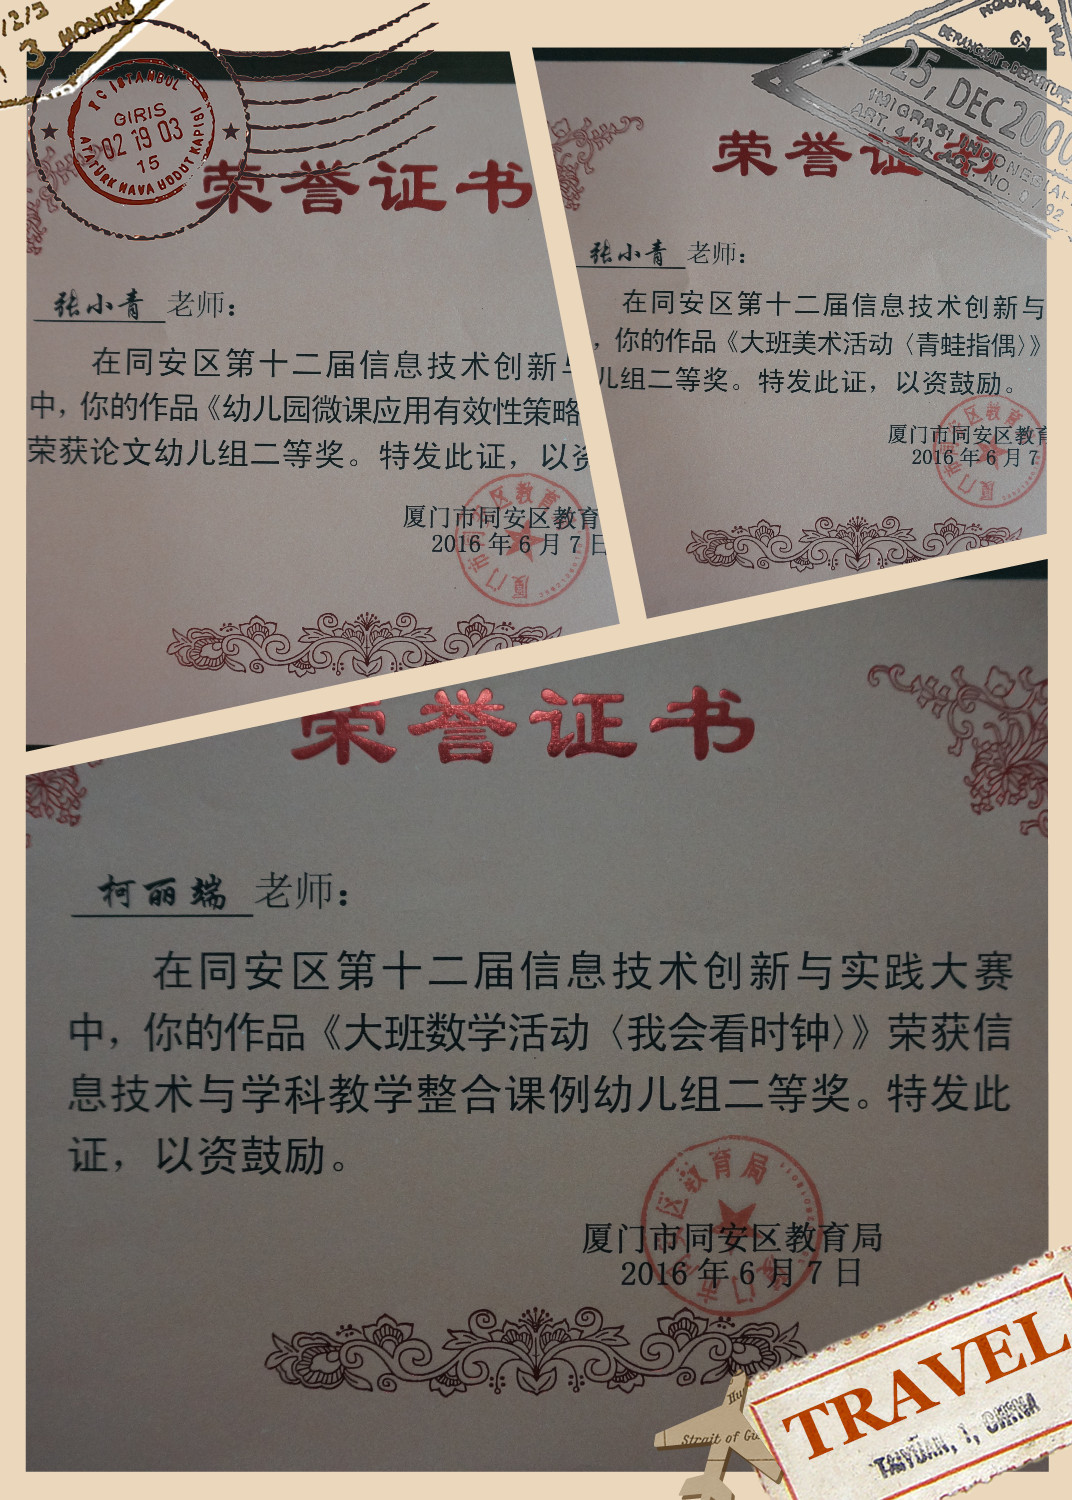 3 MONTHS
T C ISTANBUL
GIRIS
02 19 03
15
ATATÜRK HAVA HUDUT KAPISI
荣誉证书
张小青 老师:
在同安区第十二届信息技术创新与
中,你的作品《幼儿园微课应用有效性策略
荣获论文幼儿组二等奖。特发此证,以资
厦门市同安区教育
2016年6月7日
25, DEC 2000
IMIGRASI INDONESIA
荣誉证书
张小青 老师:
在同安区第十二届信息技术创新与
,你的作品《大班美术活动〈青蛙指偶〉》
儿组二等奖。特发此证,以资鼓励。
厦门市同安区教育
2016年6月7
荣誉证书
柯丽端 老师:
在同安区第十二届信息技术创新与实践大赛
中,你的作品《大班数学活动〈我会看时钟〉》荣获信
息技术与学科教学整合课例幼儿组二等奖。特发此
证,以资鼓励。
厦门市同安区教育局
2016年6月7日
TRAVEL
TAIYUAN, 1, CHINA
Strait of Gu